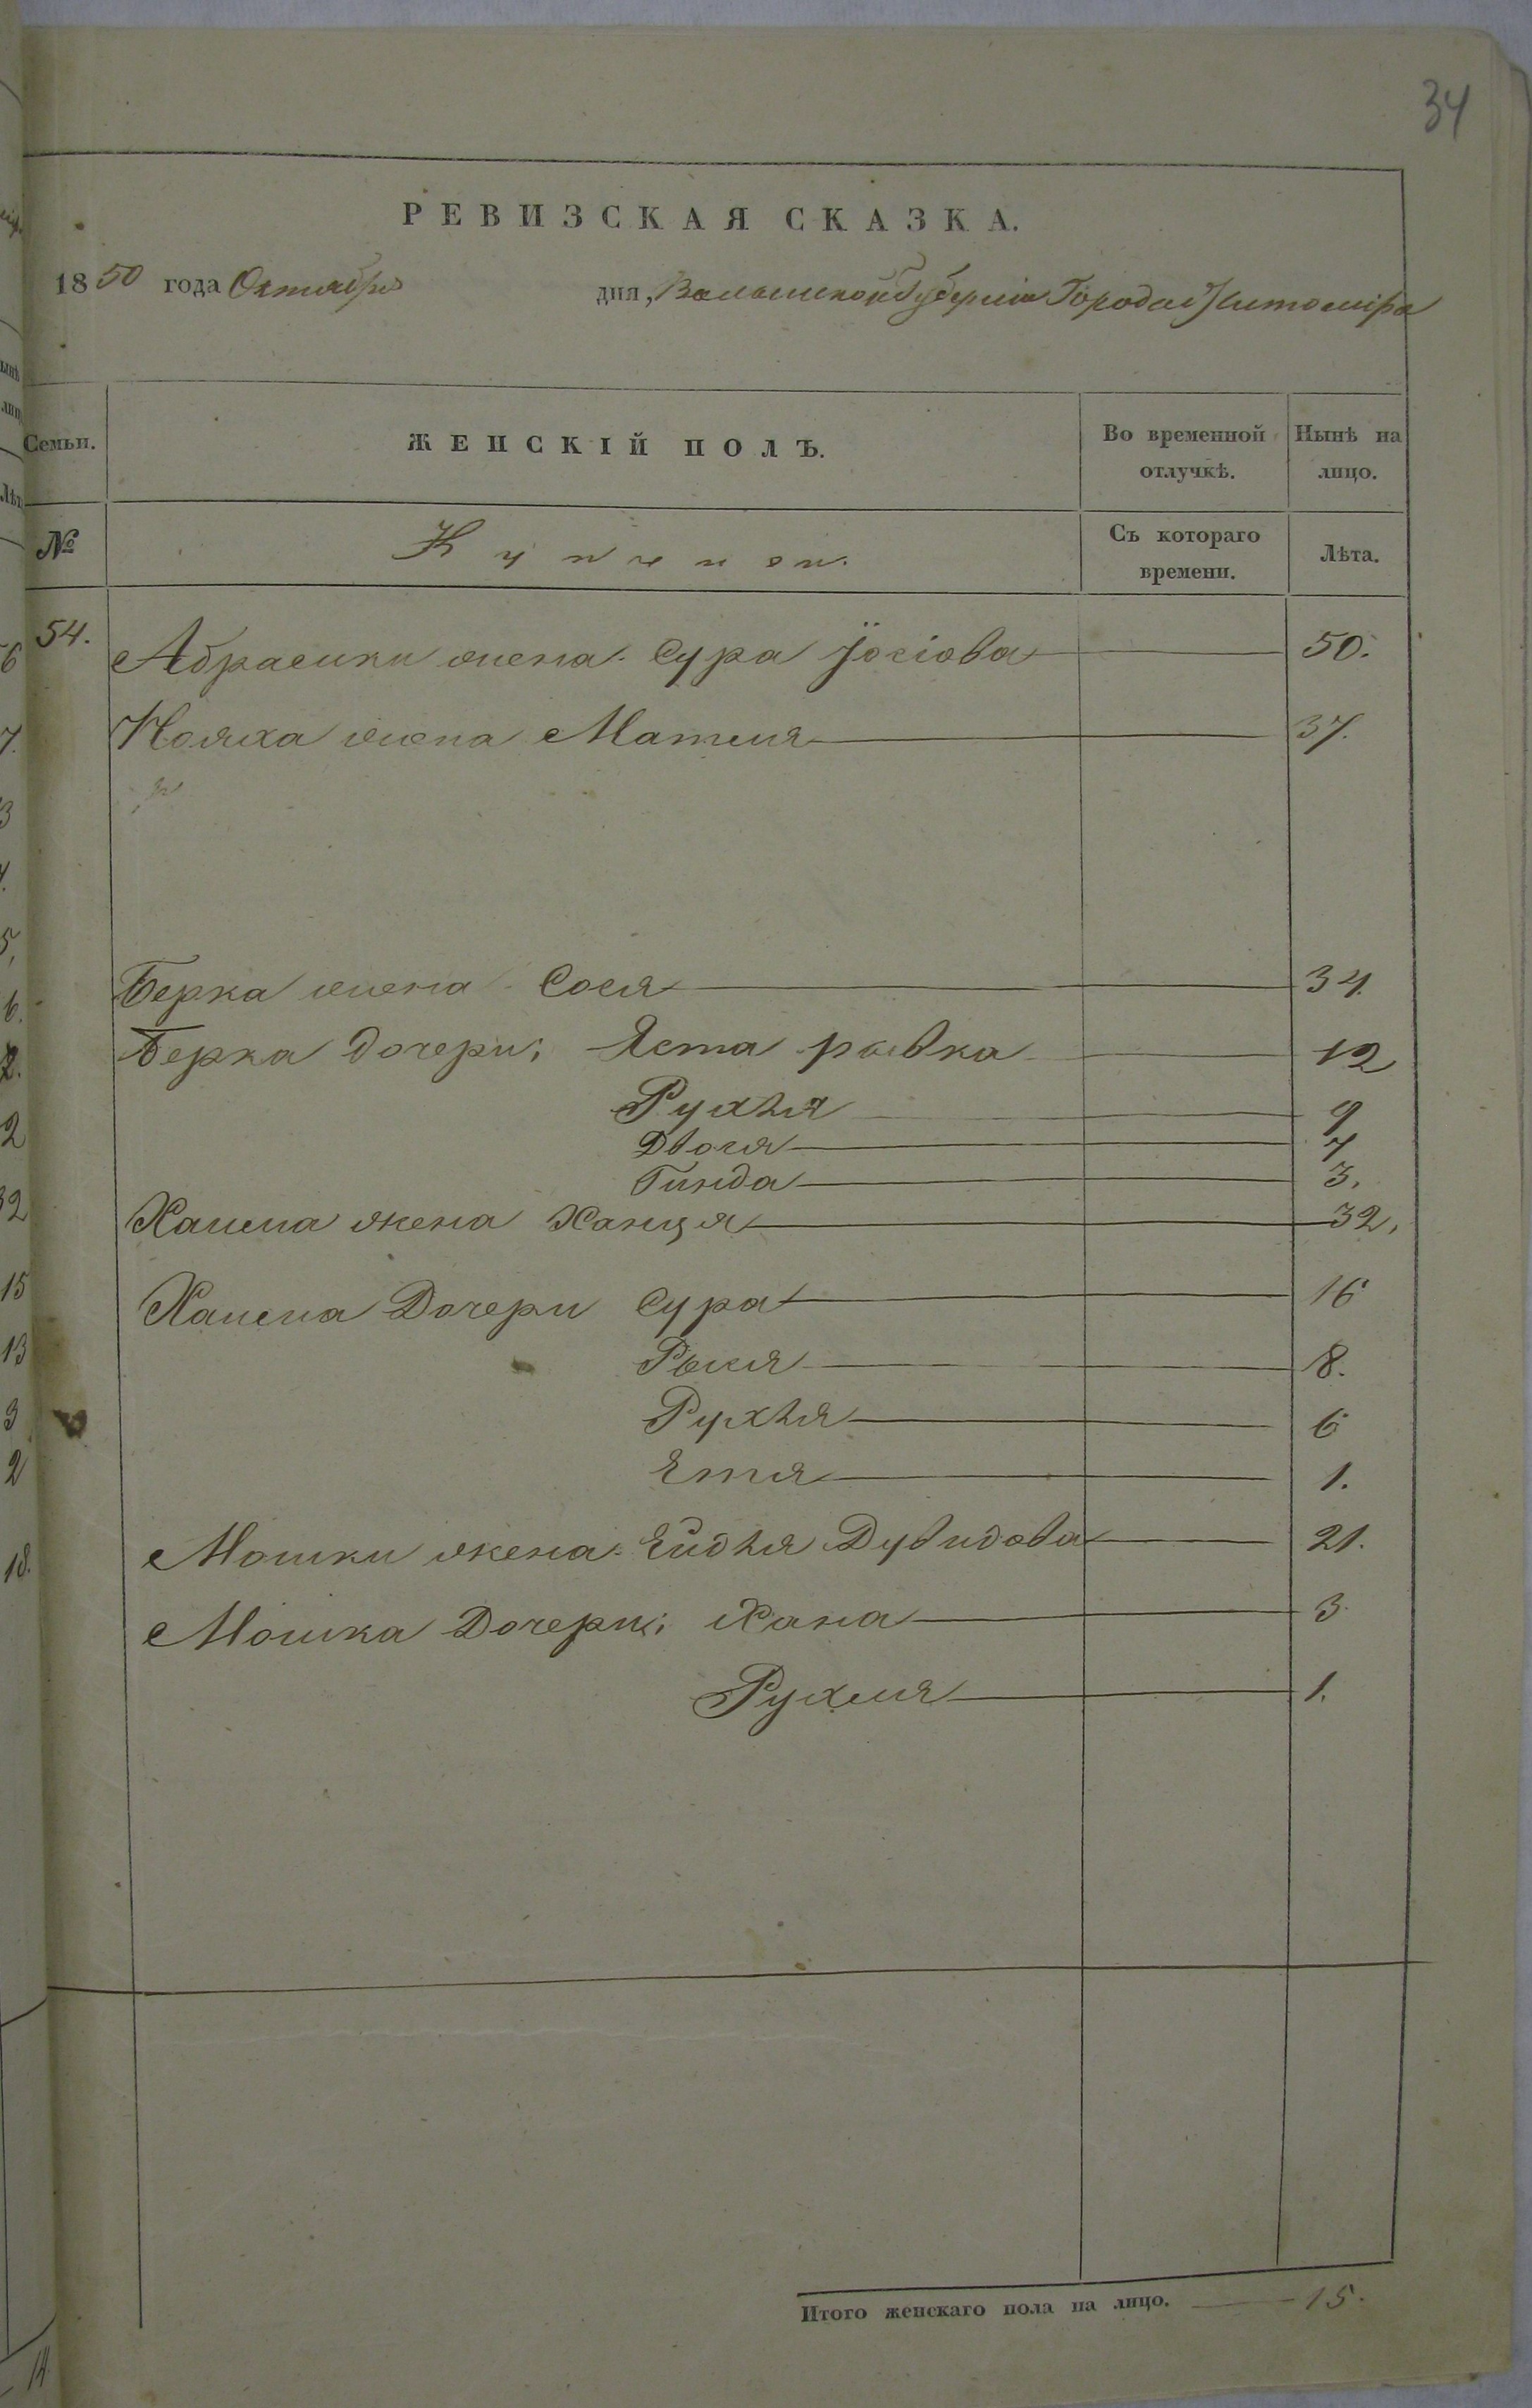 34
РЕВИЗСКАЯ СКАЗКА.
1850 года Октября дня, Волынской Губернiи Города Житомiра
Семьи. ЖЕНСКІЙ ПОЛЪ. Во временной отлучкѣ. Нынѣ на лицо.
№ Съ котораго времени. Лѣта.
54. Абрамки жена Сура Йосіова 50.
жена Матля 37.
Берка жена Сося 34.
Берка дочери; Яста рывка 12
Рухля 9
Двося 7
Гинда 3.
Хаима жена Ханця 32.
Хаима Дочери Сура 16
Рыся 8.
Рухля 6
Етя 1.
Мошки жена Ейдля Дувидова 21.
Мошка Дочери; Хана 3.
Рухля 1.
Итого женскаго пола на лицо. 15.